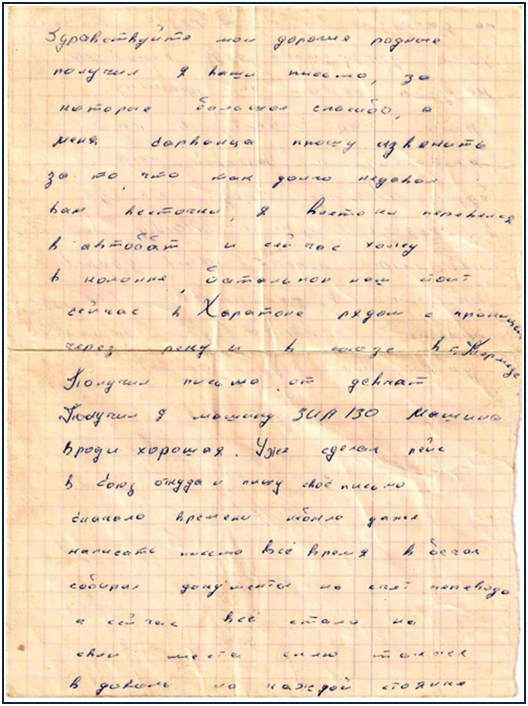 Здравствуйте мои дорогие родные
получил я ваши письмо, за
которые большое спасибо, а
меня сорванца прошу извенить
за то, что так долго недавал
вам весточки, я
в автобат и сейчас хожу
в колонне, батальйон наш стоит
сейчас в Харатоне рядом с границей
через реку и в союзе в г. Термезе
Получил письмо от девчат
Получил я машину ЗИЛ 130 Машина
вроди хорошая. Уже сделал рейс
в Союз откуда и пишу своё письмо
сначало времени небыло даже
написать письмо всё время в бегах
собирал документы на счёт перевода
а сейчас всё стало на
свои места сплю тоже
в доволь на каждой стоянке